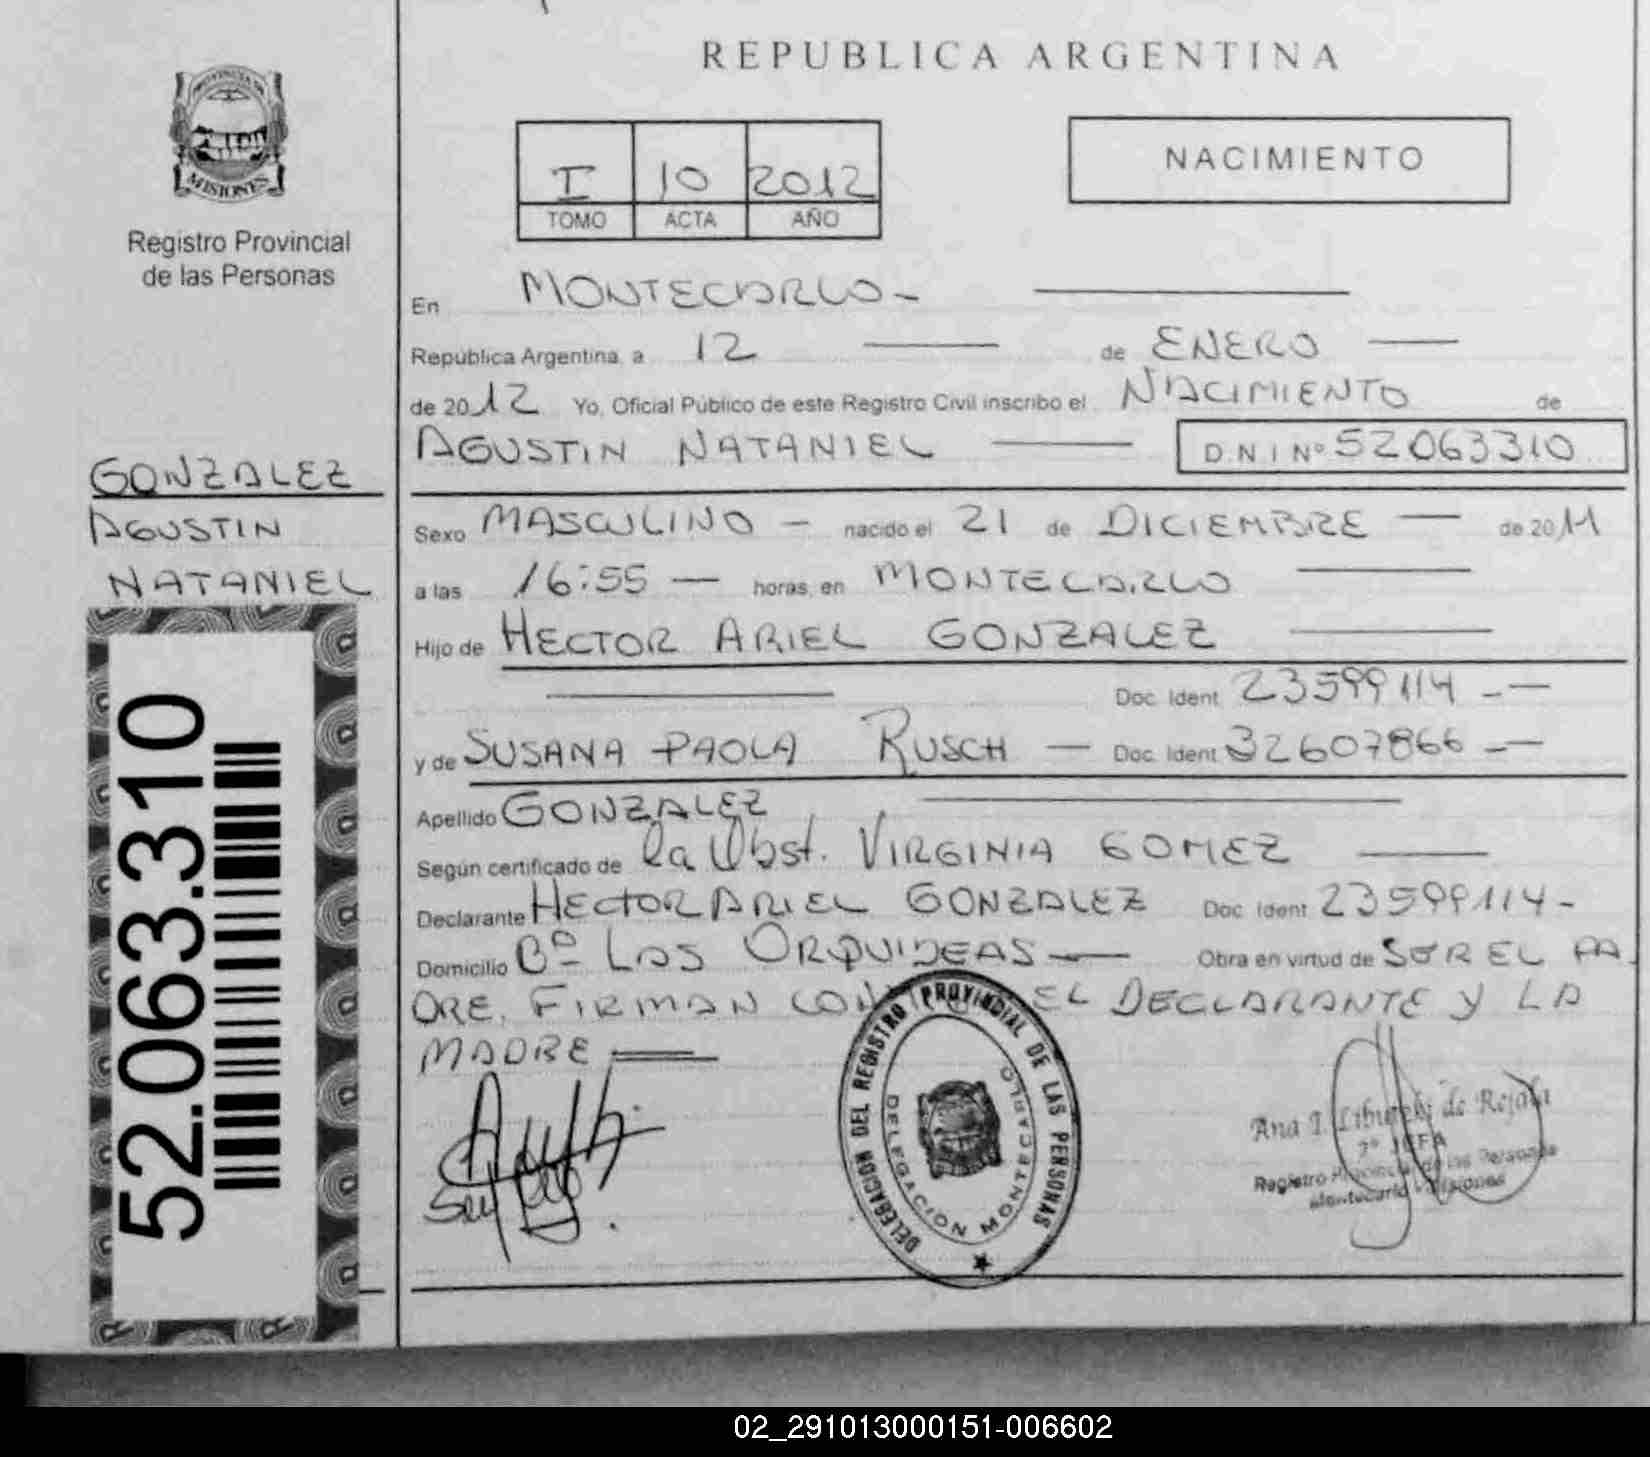 REPUBLICA ARGENTINA
PROVINCIA DE
MISIONES
Registro Provincial
de las Personas
I 10 2012
TOMO ACTA AÑO
NACIMIENTO
En MONTECARLO-
República Argentina, a 12 de ENERO
de 2012 Yo, Oficial Público de este Registro Civil inscribo el NACIMIENTO de
AGUSTIN NATANIEL D.N.I Nº 52063310
GONZALEZ
AGUSTIN
NATANIEL
52.063.310
Sexo MASCULINO - nacido el 21 de DICIEMBRE de 2011
a las 16:55 horas, en MONTECARLO
Hijo de HECTOR ARIEL GONZALEZ
Doc. Ident. 23599114
y de SUSANA PAOLA RUSCH Doc. Ident. 32607866
Apellido GONZALEZ
Según certificado de la Obst. VIRGINIA GOMEZ
Declarante HECTOR ARIEL GONZALEZ Doc. Ident. 23599114-
Domicilio Bº LAS ORQUIDEAS Obra en virtud de SER EL PA
DRE. FIRMAN EL DECLARANTE Y LA
MADRE
DELEGACION DEL REGISTRO PROVINCIAL DE LAS PERSONAS
DELEGACION MONTECARLO
Ana I. de Rejala
JEFA
Registro Provincial de las Personas
Montecarlo Misiones
02_291013000151-006602